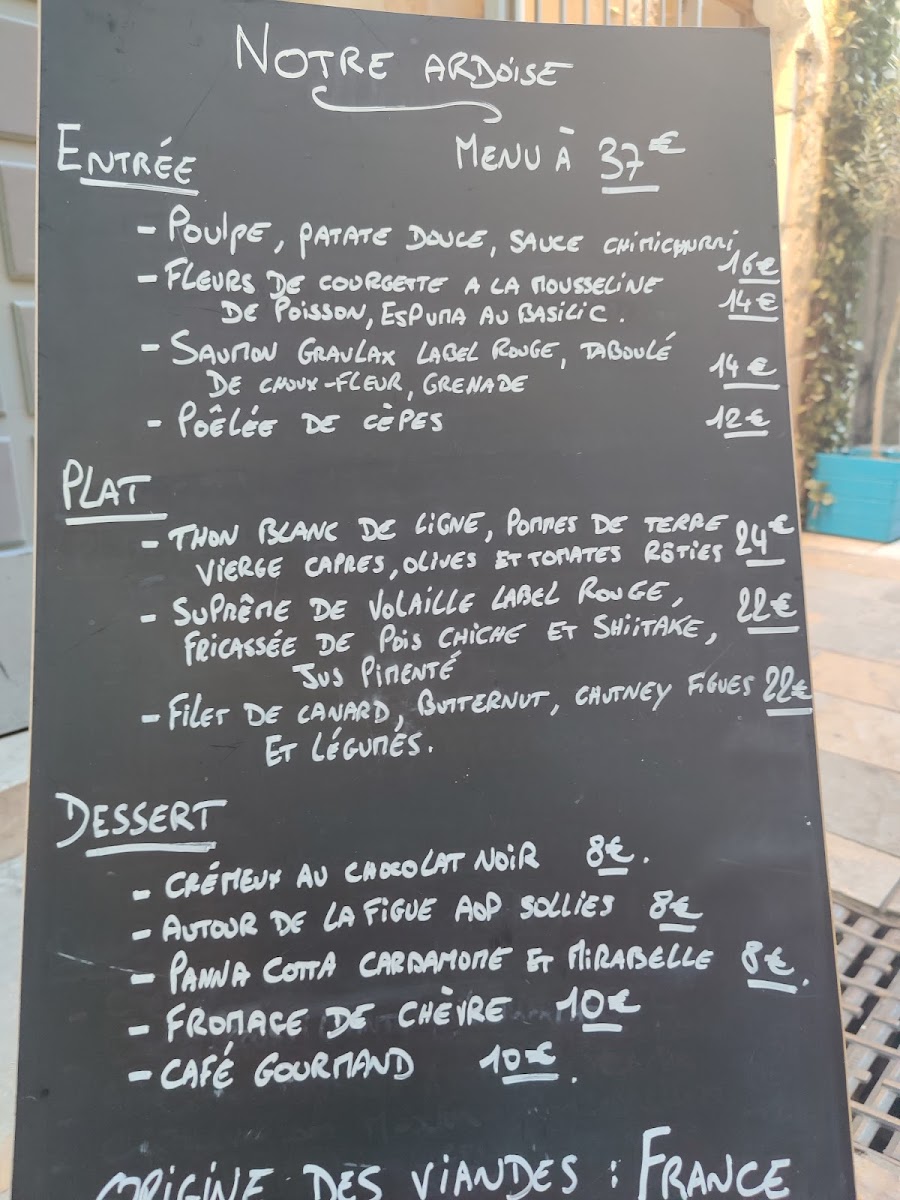 NOTRE ARDOISE
ENTRÉE
MENU À 37€
- POULPE, PATATE DOUCE, SAUCE CHIMICHURRI 16€
- FLEURS DE COURGETTE A LA MOUSSELINE
DE POISSON, ESPUMA AU BASILIC. 14€
- SAUMON GRAVLAX LABEL ROUGE, TABOULÉ
DE CHOUX-FLEUR, GRENADE 14€
- POÊLÉE DE CÈPES 12€
PLAT
- THON BLANC DE LIGNE, POMMES DE TERRE
VIERGE CAPRES, OLIVES ET TOMATES RÔTIES 24€
- SUPRÊME DE VOLAILLE LABEL ROUGE, 22€
FRICASSÉE DE POIS CHICHE ET SHIITAKE,
JUS PIMENTÉ
- FILET DE CANARD, BUTTERNUT, CHUTNEY FIGUES 22€
ET LÉGUMES.
DESSERT
- CRÉMEUX AU CHOCOLAT NOIR 8€.
- AUTOUR DE LA FIGUE AOP SOLLIES 8€
- PANNA COTTA CARDAMOME ET MIRABELLE 8€.
- FROMAGE DE CHÈVRE 10€
- CAFÉ GOURMAND 10€.
ORIGINE DES VIANDES : FRANCE